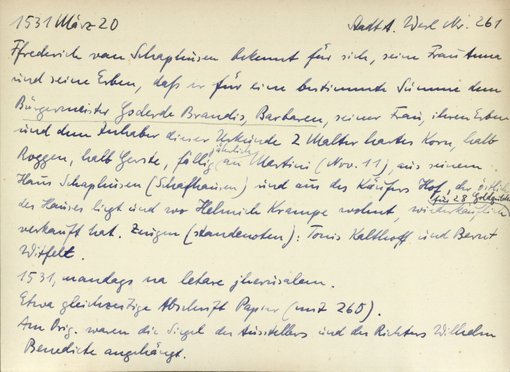 1531 März 20 Stadt A. Werl Nr. 261
Ffrederich van Schaphusen bekennt für sich, seine Frau Anna
und seine Erben, daß er für eine bestimmte Summe dem
Bürgermeister Goderde Brandis, Barbaren, seiner Frau, ihren Erben
und dem Inhaber dieser Urkunde 2 Malter hartes Korn, halb
Roggen, halb Gerste, fällig jährlich an Martini (Nov. 11), aus seinem
Haus Schaphusen (Schafhausen) und aus des Hof, der östlich
des Hauses liegt und wo Helmich Krampe wohnt, für 28 Goldgulden wiederkäuflich
verkauft hat. Zeugen (standenoten): Tonis Kalthoff und Bernt
Witfelt.
1531, mandags na letare jherusalem.
Etwa gleichzeitige Abschrift Papier (mit 260).
Am Orig. waren die Siegel des Ausstellers und des Richters Wilhelm
Benedicte angehängt.